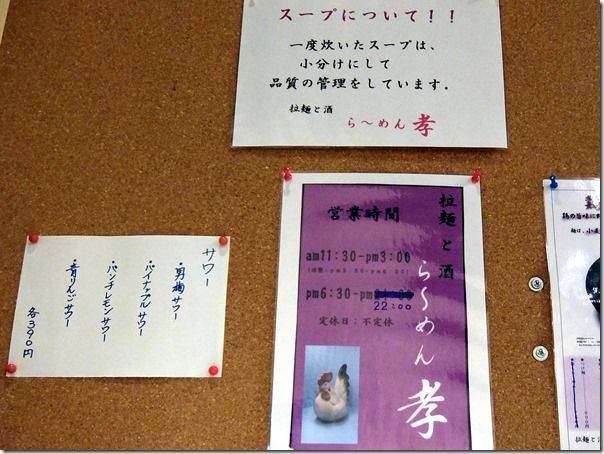 スープについて！！
一度炊いたスープは、
小分けにして
品質の管理をしています。
拉麺と酒
ら～めん 孝
拉麺と酒
ら～めん 孝
営業時間
am11:30-pm3:00
pm6:30-pm
22:00
定休日：不定休
サワー
・男梅サワー
・パイナップルサワー
・パンチレモンサワー
・青りんごサワー
各390円